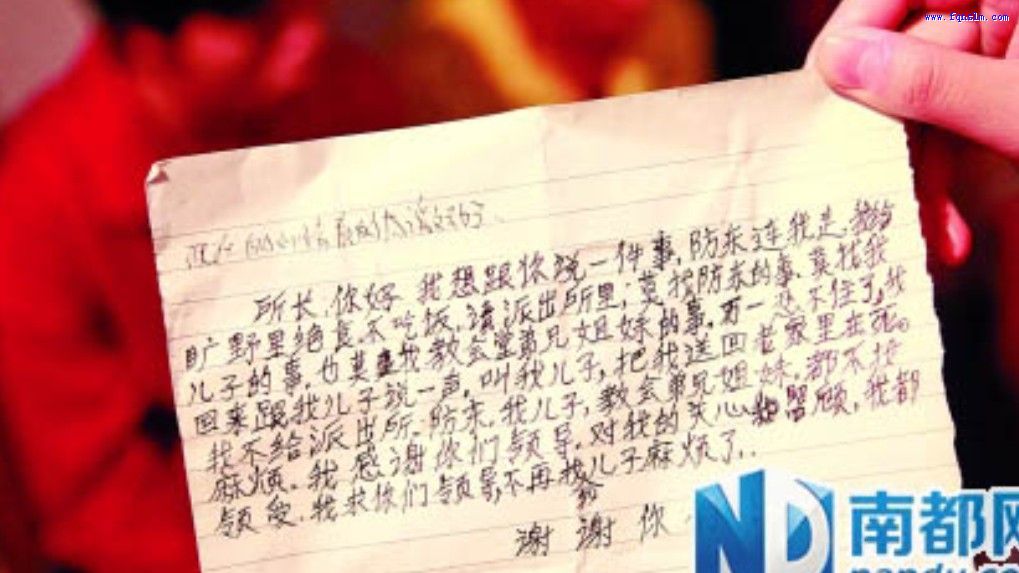 www.fqnslm.com
所长,你好.我想跟你说一件事,防东连我走,我给
旷野里绝真不吃饭.请派出所里;莫找防东的事.莫找我
儿子的事,也莫找教会堂弟兄姐妹的事,万一 不住了,我
回来跟我儿子说一声,叫我儿子,把我送回老家里在死。
我不给派出所.防东,我儿子,教会弟兄姐妹,都不找
麻烦.我感谢你们领导,对我的关心 照顾,我都
领受.我求你们领导,不再找儿子麻烦了..
谢谢你
ND 南都网
nandu.com